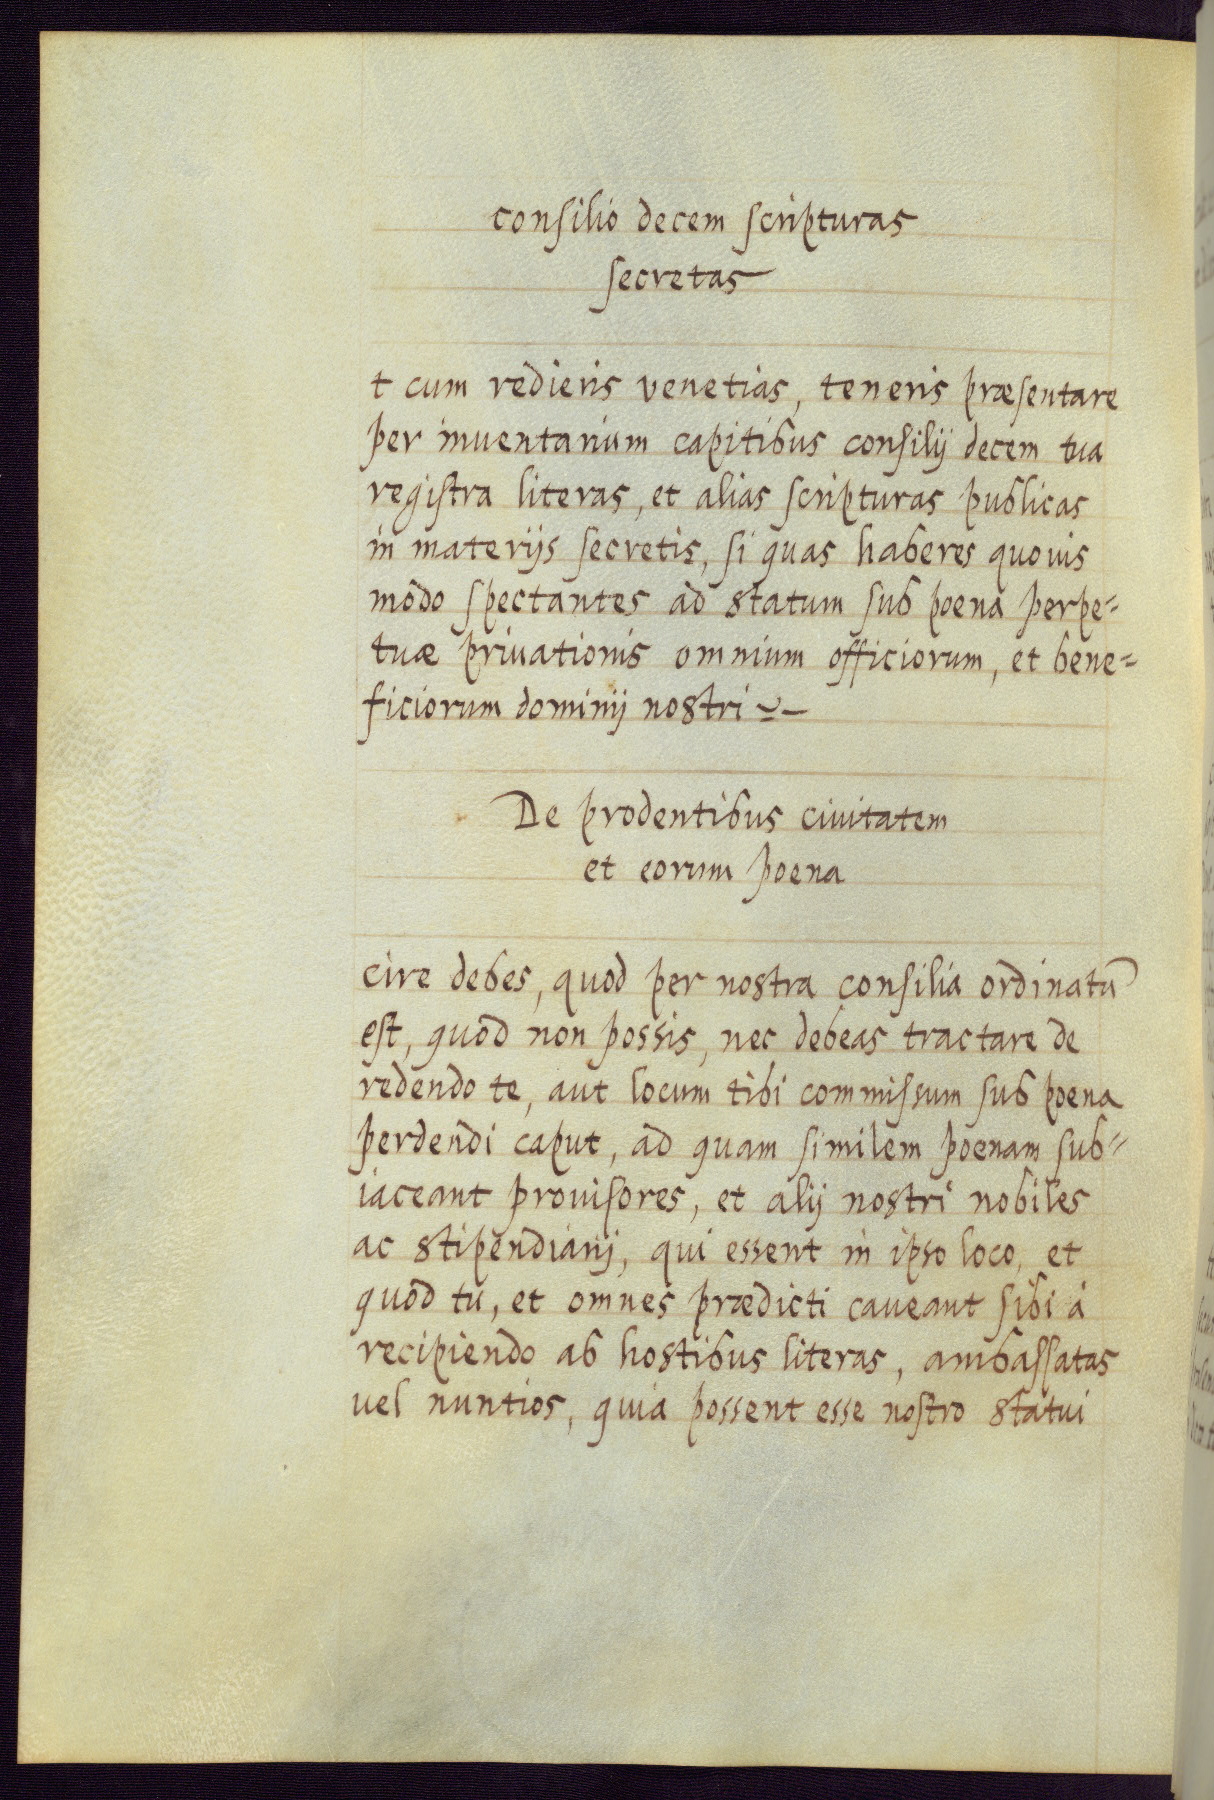 consilio decem scripturas
secretas
t cum redieris venetias, teneris præsentare
per inuentarium capitibus consilij decem tua
registra literas, et alias scripturas publicas
in materijs secretis, si quas haberes quouis
modo spectantes ad statum sub poena perpe=
tuæ priuationis omnium officiorum, et bene=
ficiorum dominij nostri
De prodentibus ciuitatem
et eorum poena
cire debes, quod per nostra consilia ordinatū
est, quod non possis, nec debeas tractare de
redendo te, aut locum tibi commissum sub poena
perdendi caput, ad quam similem poenam sub=
iaceant prouisores, et alij nostri nobiles
ac stipendiarij, qui essent in ipso loco, et
quod tu, et omnes prædicti caueant sibi à
recipiendo ab hostibus literas, ambassatas
uel nuntios, quia possent esse nostro statui